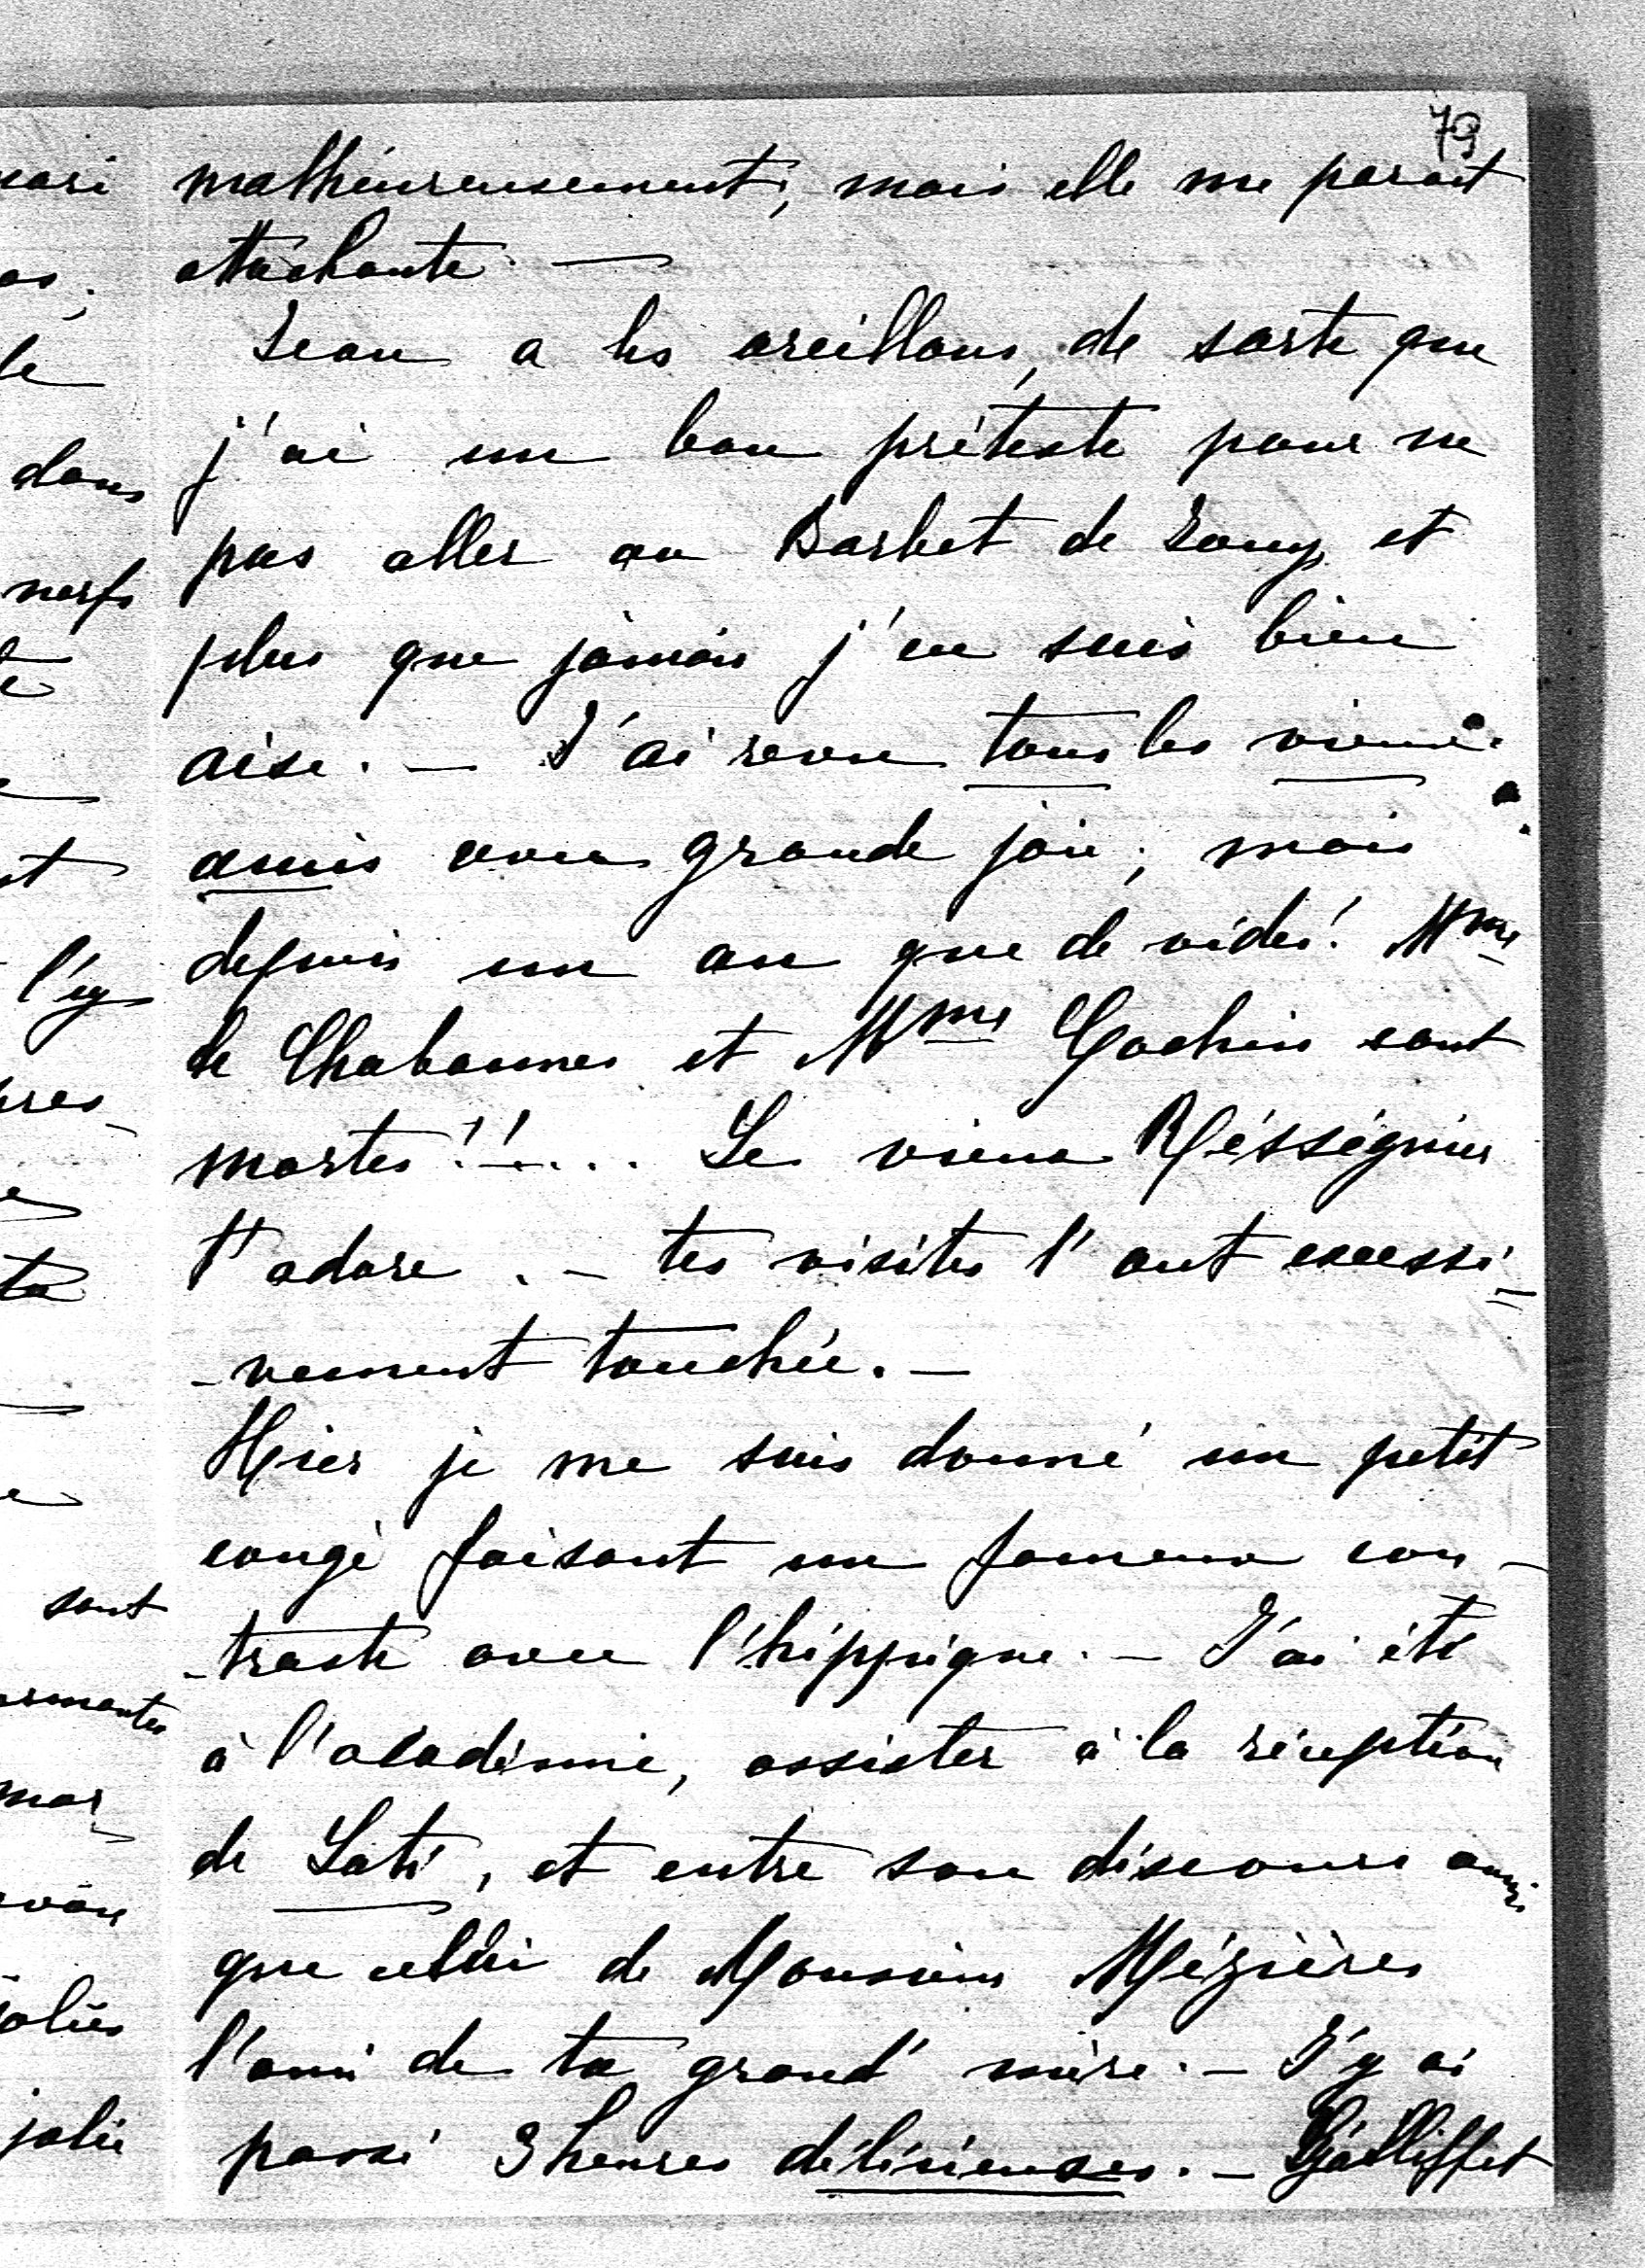 79
malheureusement, mais elle me parait
attachante. —
Jean a les oreillons, de sorte que
j'ai un bon prétexte pour ne
pas aller au Barbet de Jouy et
plus que jamais j'en suis bien
aise. — J'ai revu tous les vieux
amis avec grande joie ; mais
depuis un an que de vides! Mme
de Chabannes et Mme Cochin sont
mortes!!.... Le vieux Rességuier
t'adore. — tes visites l'ont excessi-
-vement touchée. —
Hier je me suis donné un petit
congé faisant un fameux con-
-traste avec l'hippique. — J'ai été
à l'académie, assister à la réception
de Loti, et entre son discours ainsi
que celui de Monsieur Mézières
l'ami de ta grand'mère. — J'y ai
passé 3 heures délicieuses. — Galliffet